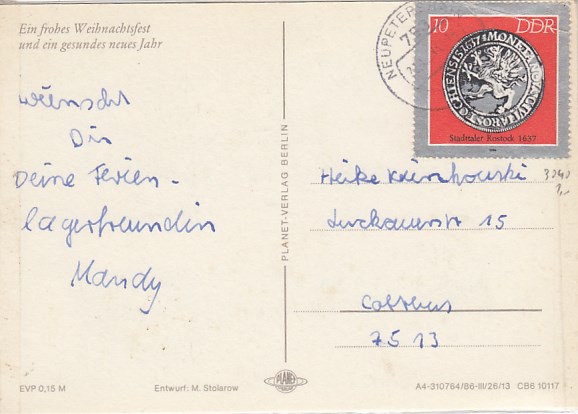 Ein frohes Weihnachtsfest
und ein gesundes neues Jahr
wünscht
Dir
Deine Ferien-
lagerfreundin
Mandy
EVP 0,15 M
Entwurf: M. Stolarow
PLANET-VERLAG BERLIN
PLANET
NEUPETER
10 DDR
Stadttaler Rostock 1637
Heike
Luckauerstr 15
Cottbus
7513
A4-310764/86-III/26/13 CB6 10117